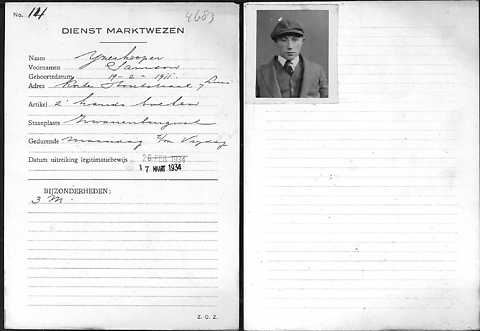 No. 14 4683
DIENST MARKTWEZEN
Naam IJzerkooper
Voornamen Salomon
Geboortedatum 19-2-1911.
Adres Korte Houtstraat 7
Artikel 2e hands boeken
Staanplaats Zwanenburgwal
Gedurende maandag t/m Vrijdag
Datum uitreiking legitimatiebewijs 28 FEB 1934
17 MAART 1934
BIJZONDERHEDEN:
3 M.
Z. O. Z.